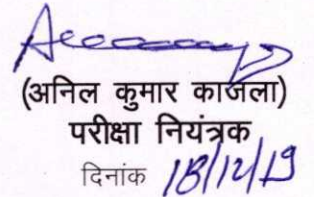 (अनिल कुमार काजला)
परीक्षा नियंत्रक
दिनांक 18/12/19